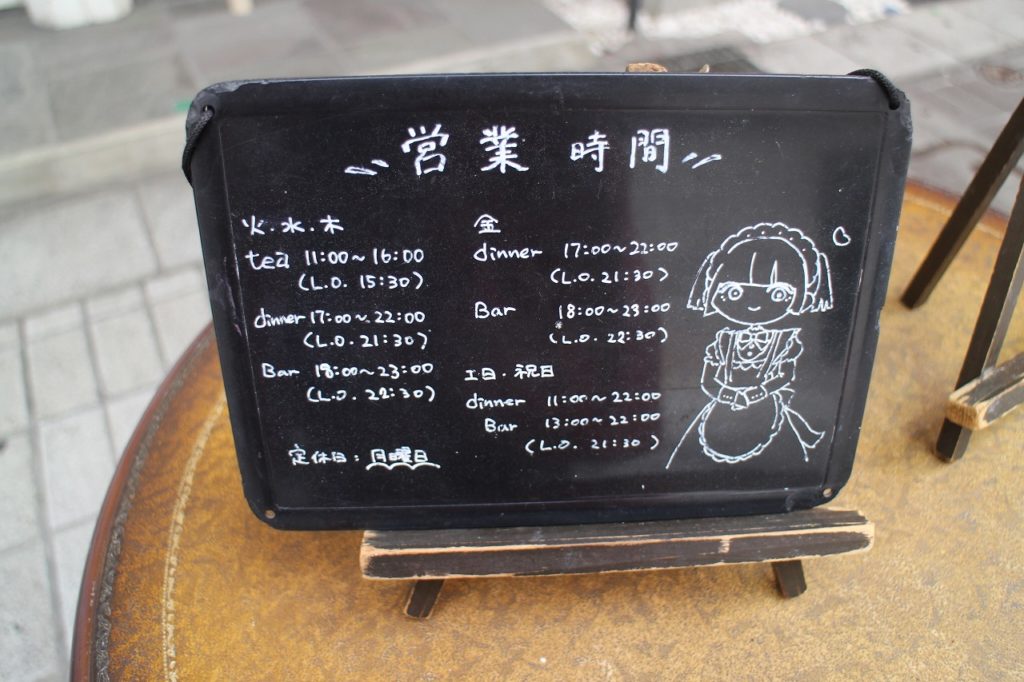 営業時間
火・水・木
tea 11:00～16:00
(L.O. 15:30)
dinner 17:00～22:00
(L.O. 21:30)
Bar 18:00～23:00
(L.O. 22:30)
定休日：月曜日
金
dinner 17:00～22:00
(L.O. 21:30)
Bar 18:00～23:00
(L.O. 22:30)
土日・祝日
dinner 11:00～22:00
Bar 13:00～22:00
(L.O. 21:30)